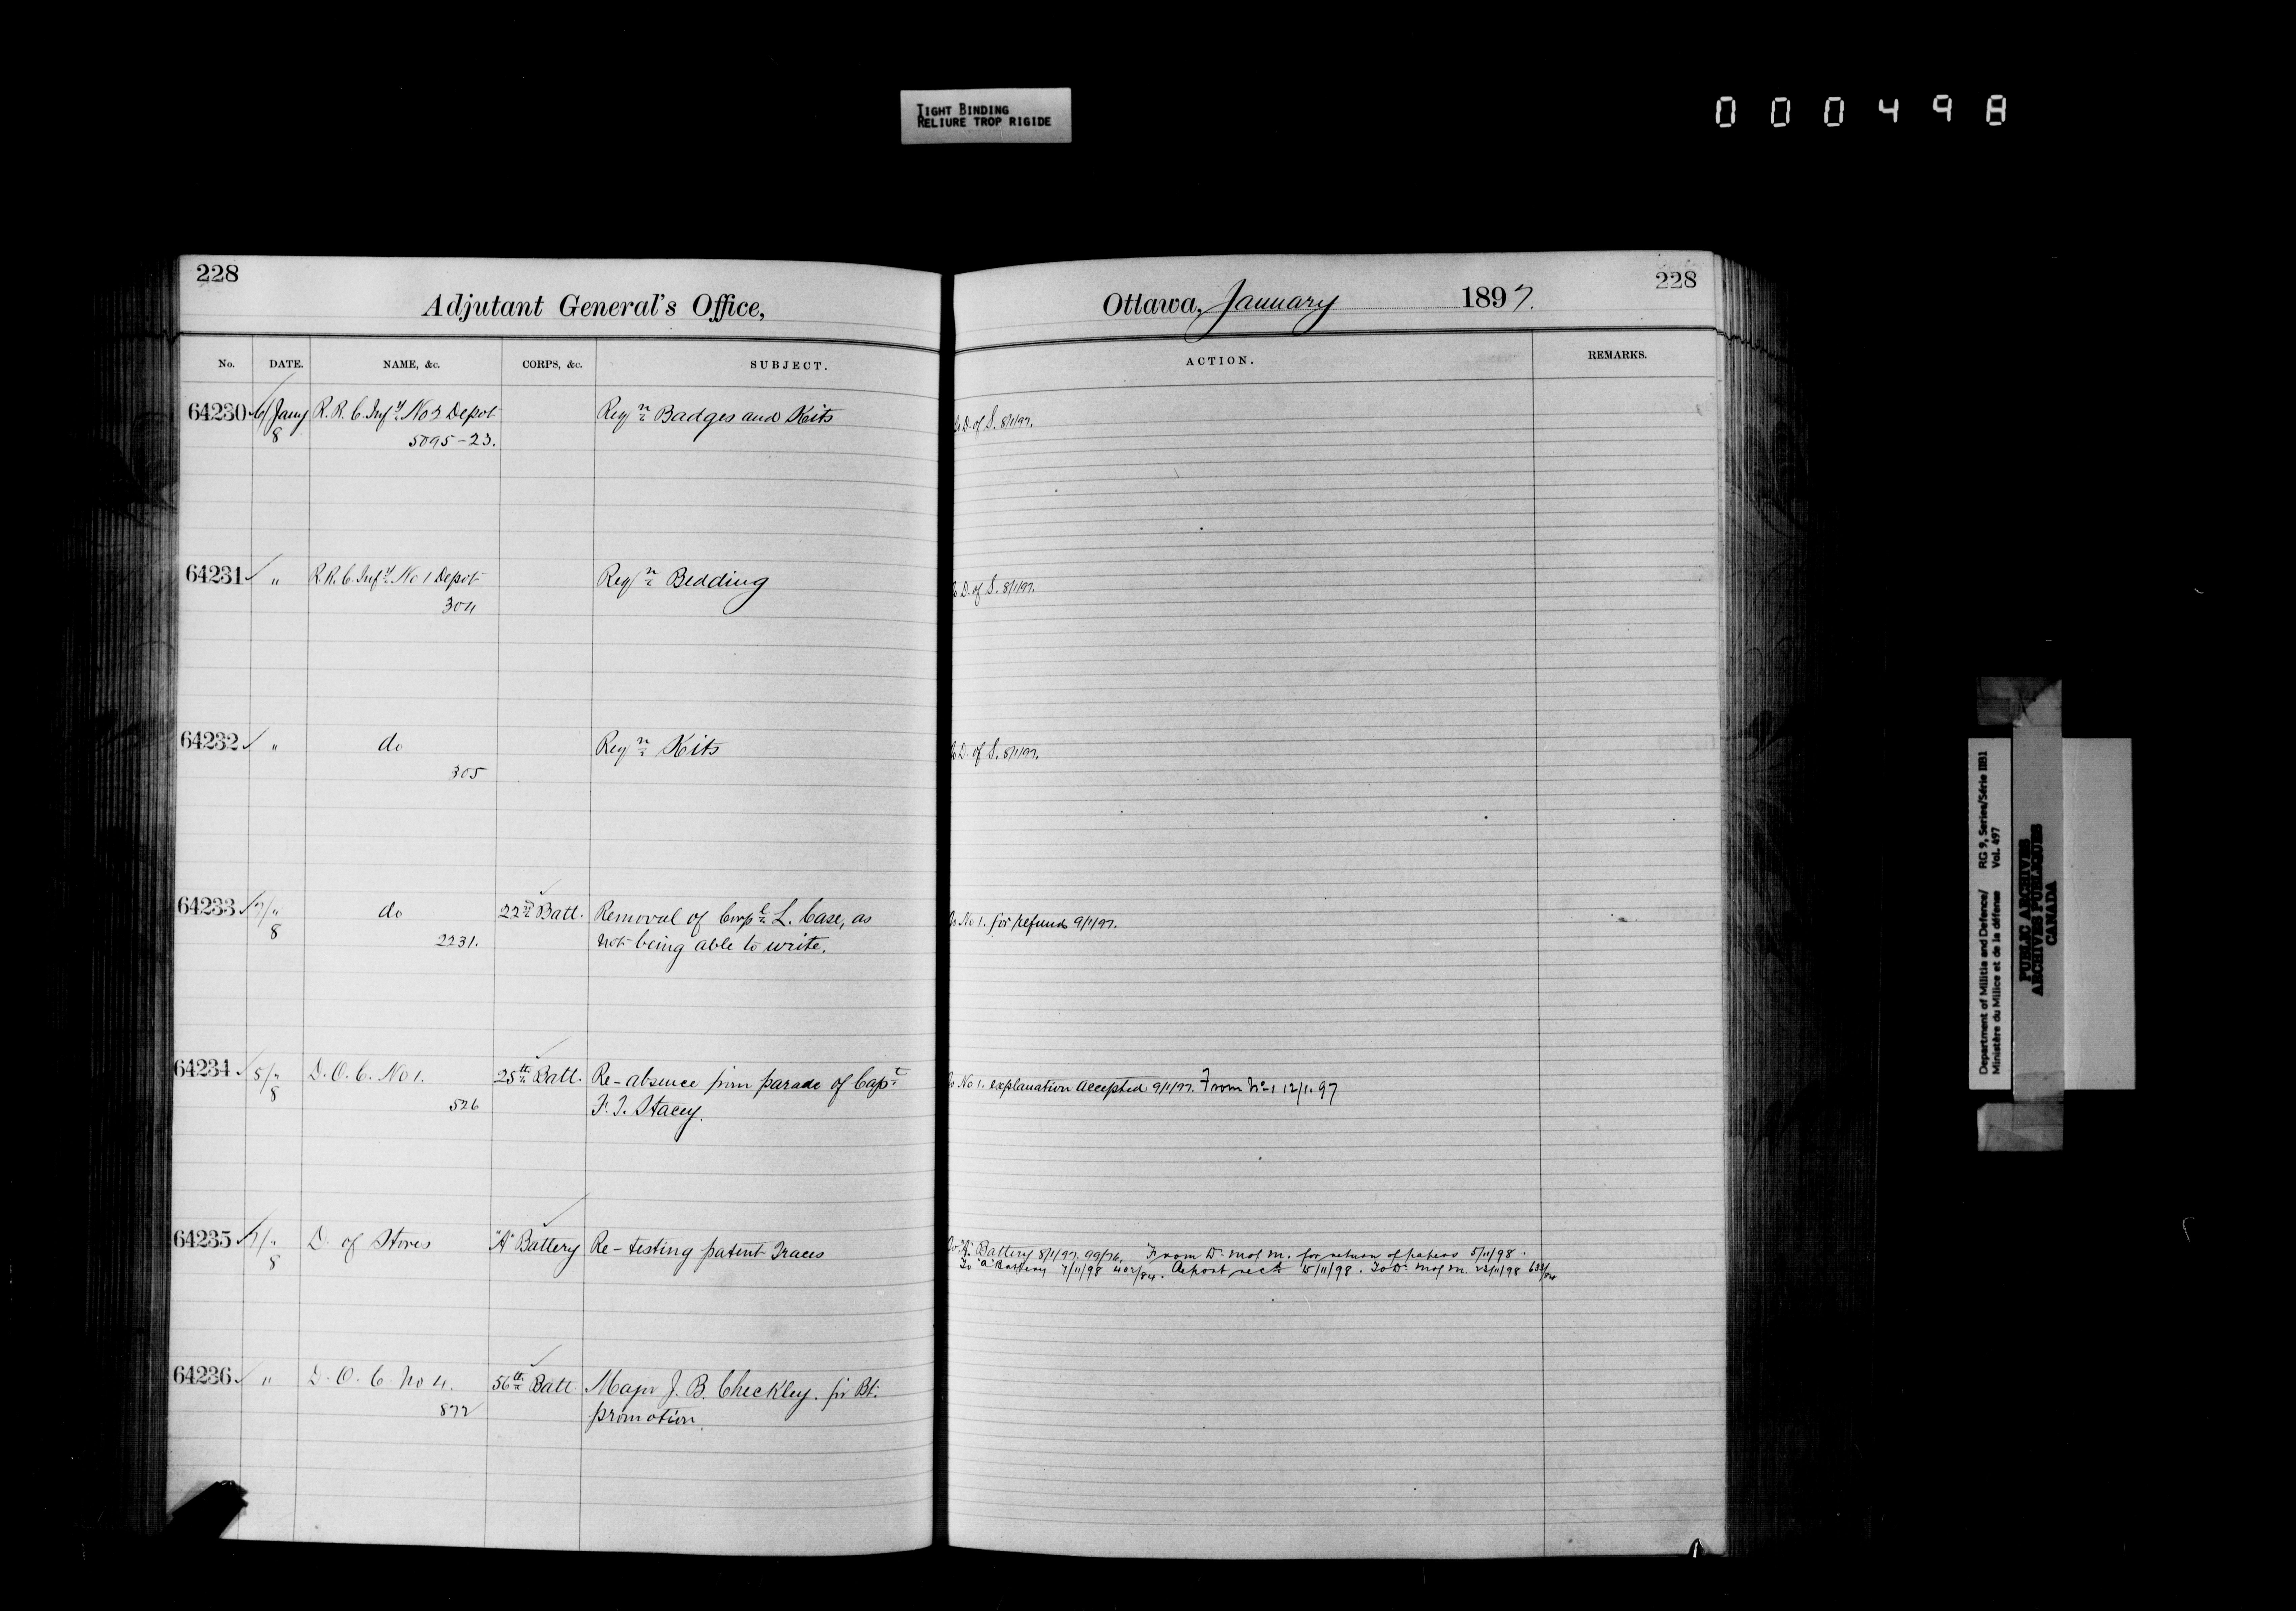 TIGHT BINDING
RELIURE TROP RIGIDE
000498
228
Adjutant General's Office,
Ottawa, January 1897.
228
No. DATE. NAME, &c. CORPS, &c. SUBJECT. ACTION. REMARKS.
64230 6/8 Jany R. R. C. Infy No 3 Depot Reqn Badges and Kits To D. of S. 8/1/97.
5095-23.
64231 " R. R. C. Infy No 1 Depot Reqn Bedding To D. of S. 8/1/97.
304
64232 " do Reqn Kits To D. of S. 8/1/97.
305
64233 7/8 " do 22nd Batt. Removal of Corpl L. Case, as To No 1. for refund 9/1/97.
2231. not being able to write.
64234 5/8 " D. O. C. No 1. 25th Batt. Re-absence from parade of Capt To No 1. explanation accepted 9/1/97. From No 1 12/1.97
526 F. T. Stacey.
64235 7/8 " D. of Stores "A" Battery Re-testing patent Traces To "A" Battery 8/1/97. 99/76. From D. M of M. for return of papers 5/11/98.
To "A" Battery 7/11/98 402/84. Report recd 15/11/98. To D. M of M. 23/11/98 633/84
64236 " D. O. C. No 4. 56th Batt Major J. B. Checkley. for Bt.
877 promotion.
Department of Militia and Defence/ RG 9, Series/Série IIB1
Ministère du Milice et de la défense Vol. 497
PUBLIC ARCHIVES
ARCHIVES PUBLIQUES
CANADA